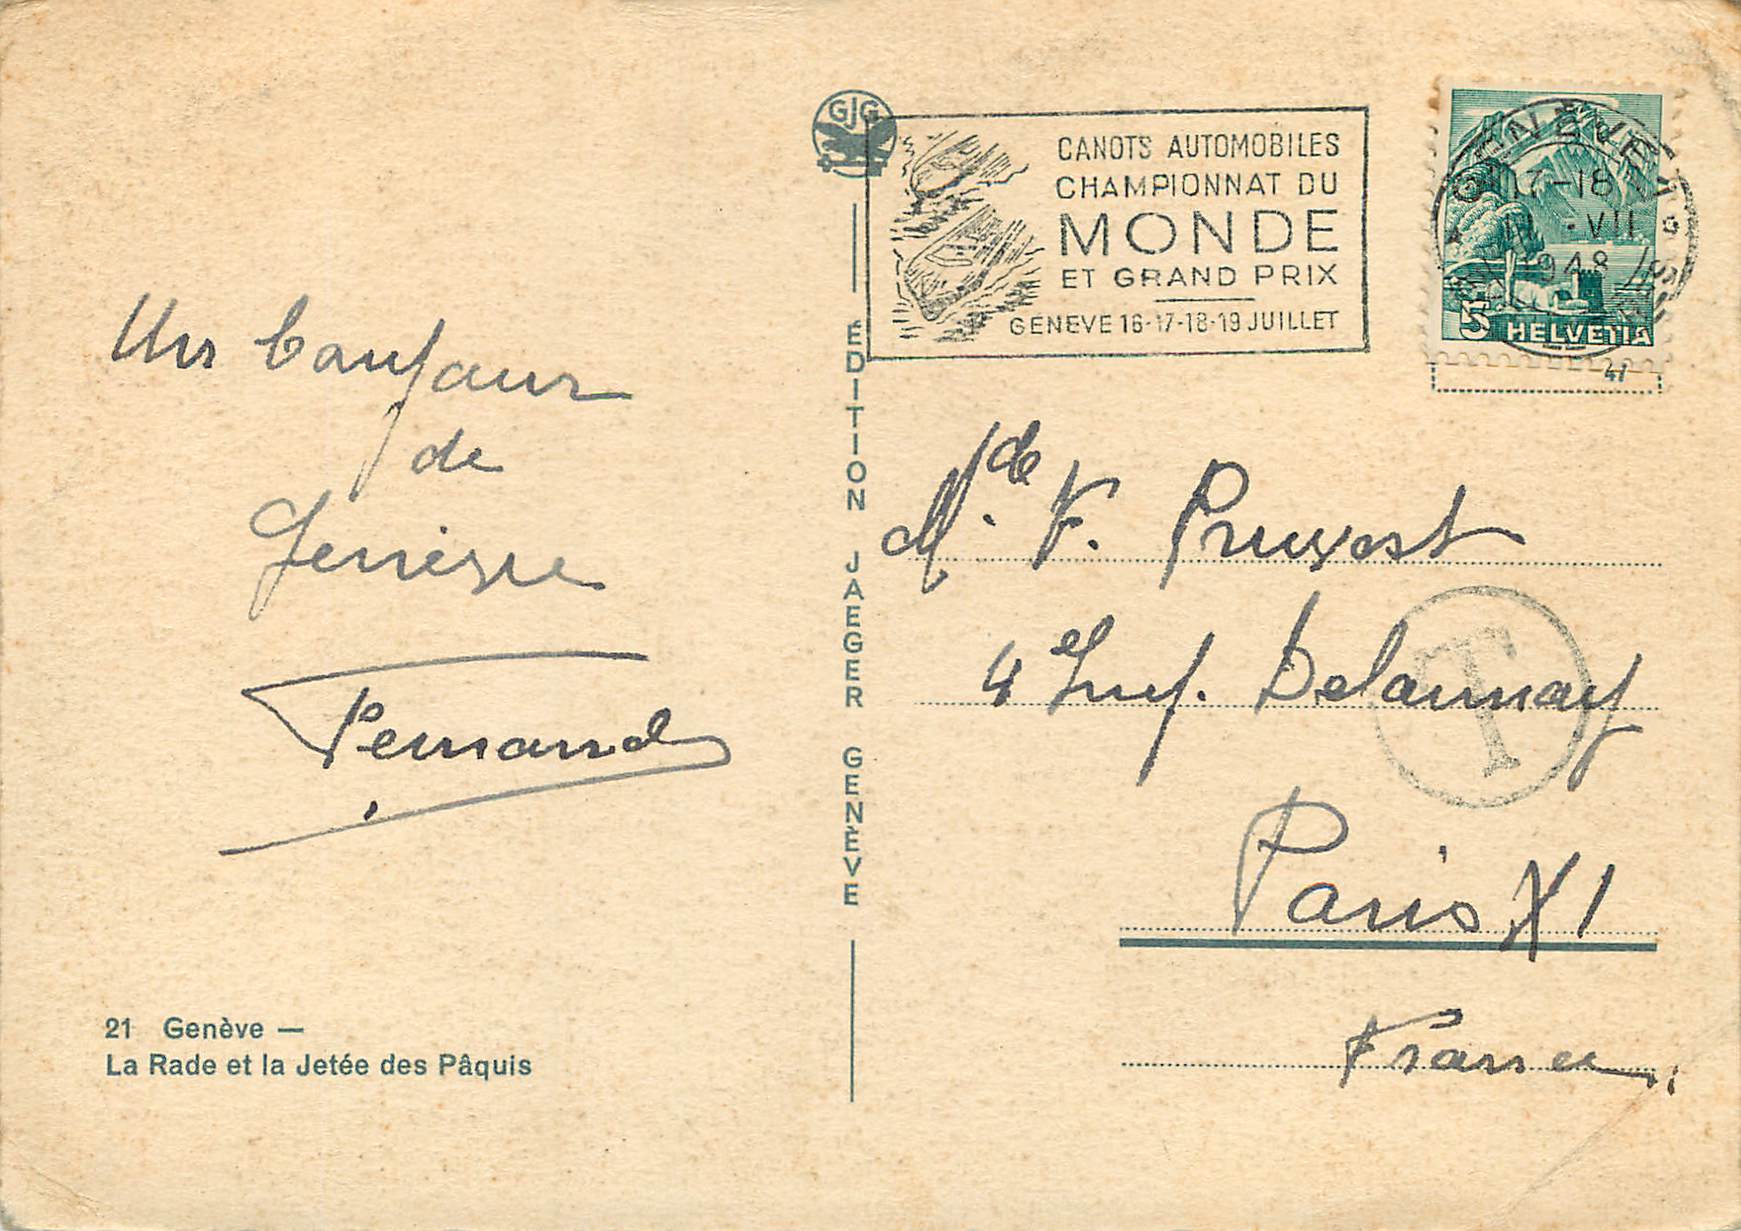 GJG
CANOTS AUTOMOBILES
CHAMPIONNAT DU
MONDE
ET GRAND PRIX
GENEVE 16-17-18-19 JUILLET
GENÈVE 1
17-18
VII
1948
5 HELVETIA
41
Un bonjour
de
Genève
Fernand
21 Genève —
La Rade et la Jetée des Pâquis
EDITION JAEGER GENÈVE
Mde. F. Pruvost
4 Imp. Delaunay
T
Paris XI
France